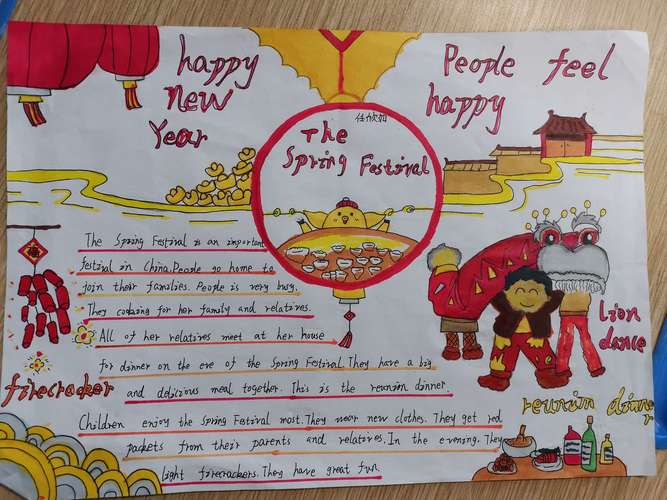 happy
new
Year
People feel
happy
The
Spring Festival
The Spring Festival is an important
festival in China.People go home to
join their families. People is very busy.
They cooking for her family and relatives.
All of her relatives meet at her house
for dinner on the eve of the Spring Festival.They have a big
and delicious meal together. This is the reunion dinner
Children enjoy the Spring Festival most.They wear new clothes. They get red
packets from their parents and relatives.In the evening. They
light firecrackers.They have great fun.
firecracker
Lion
dance
reunion dinner